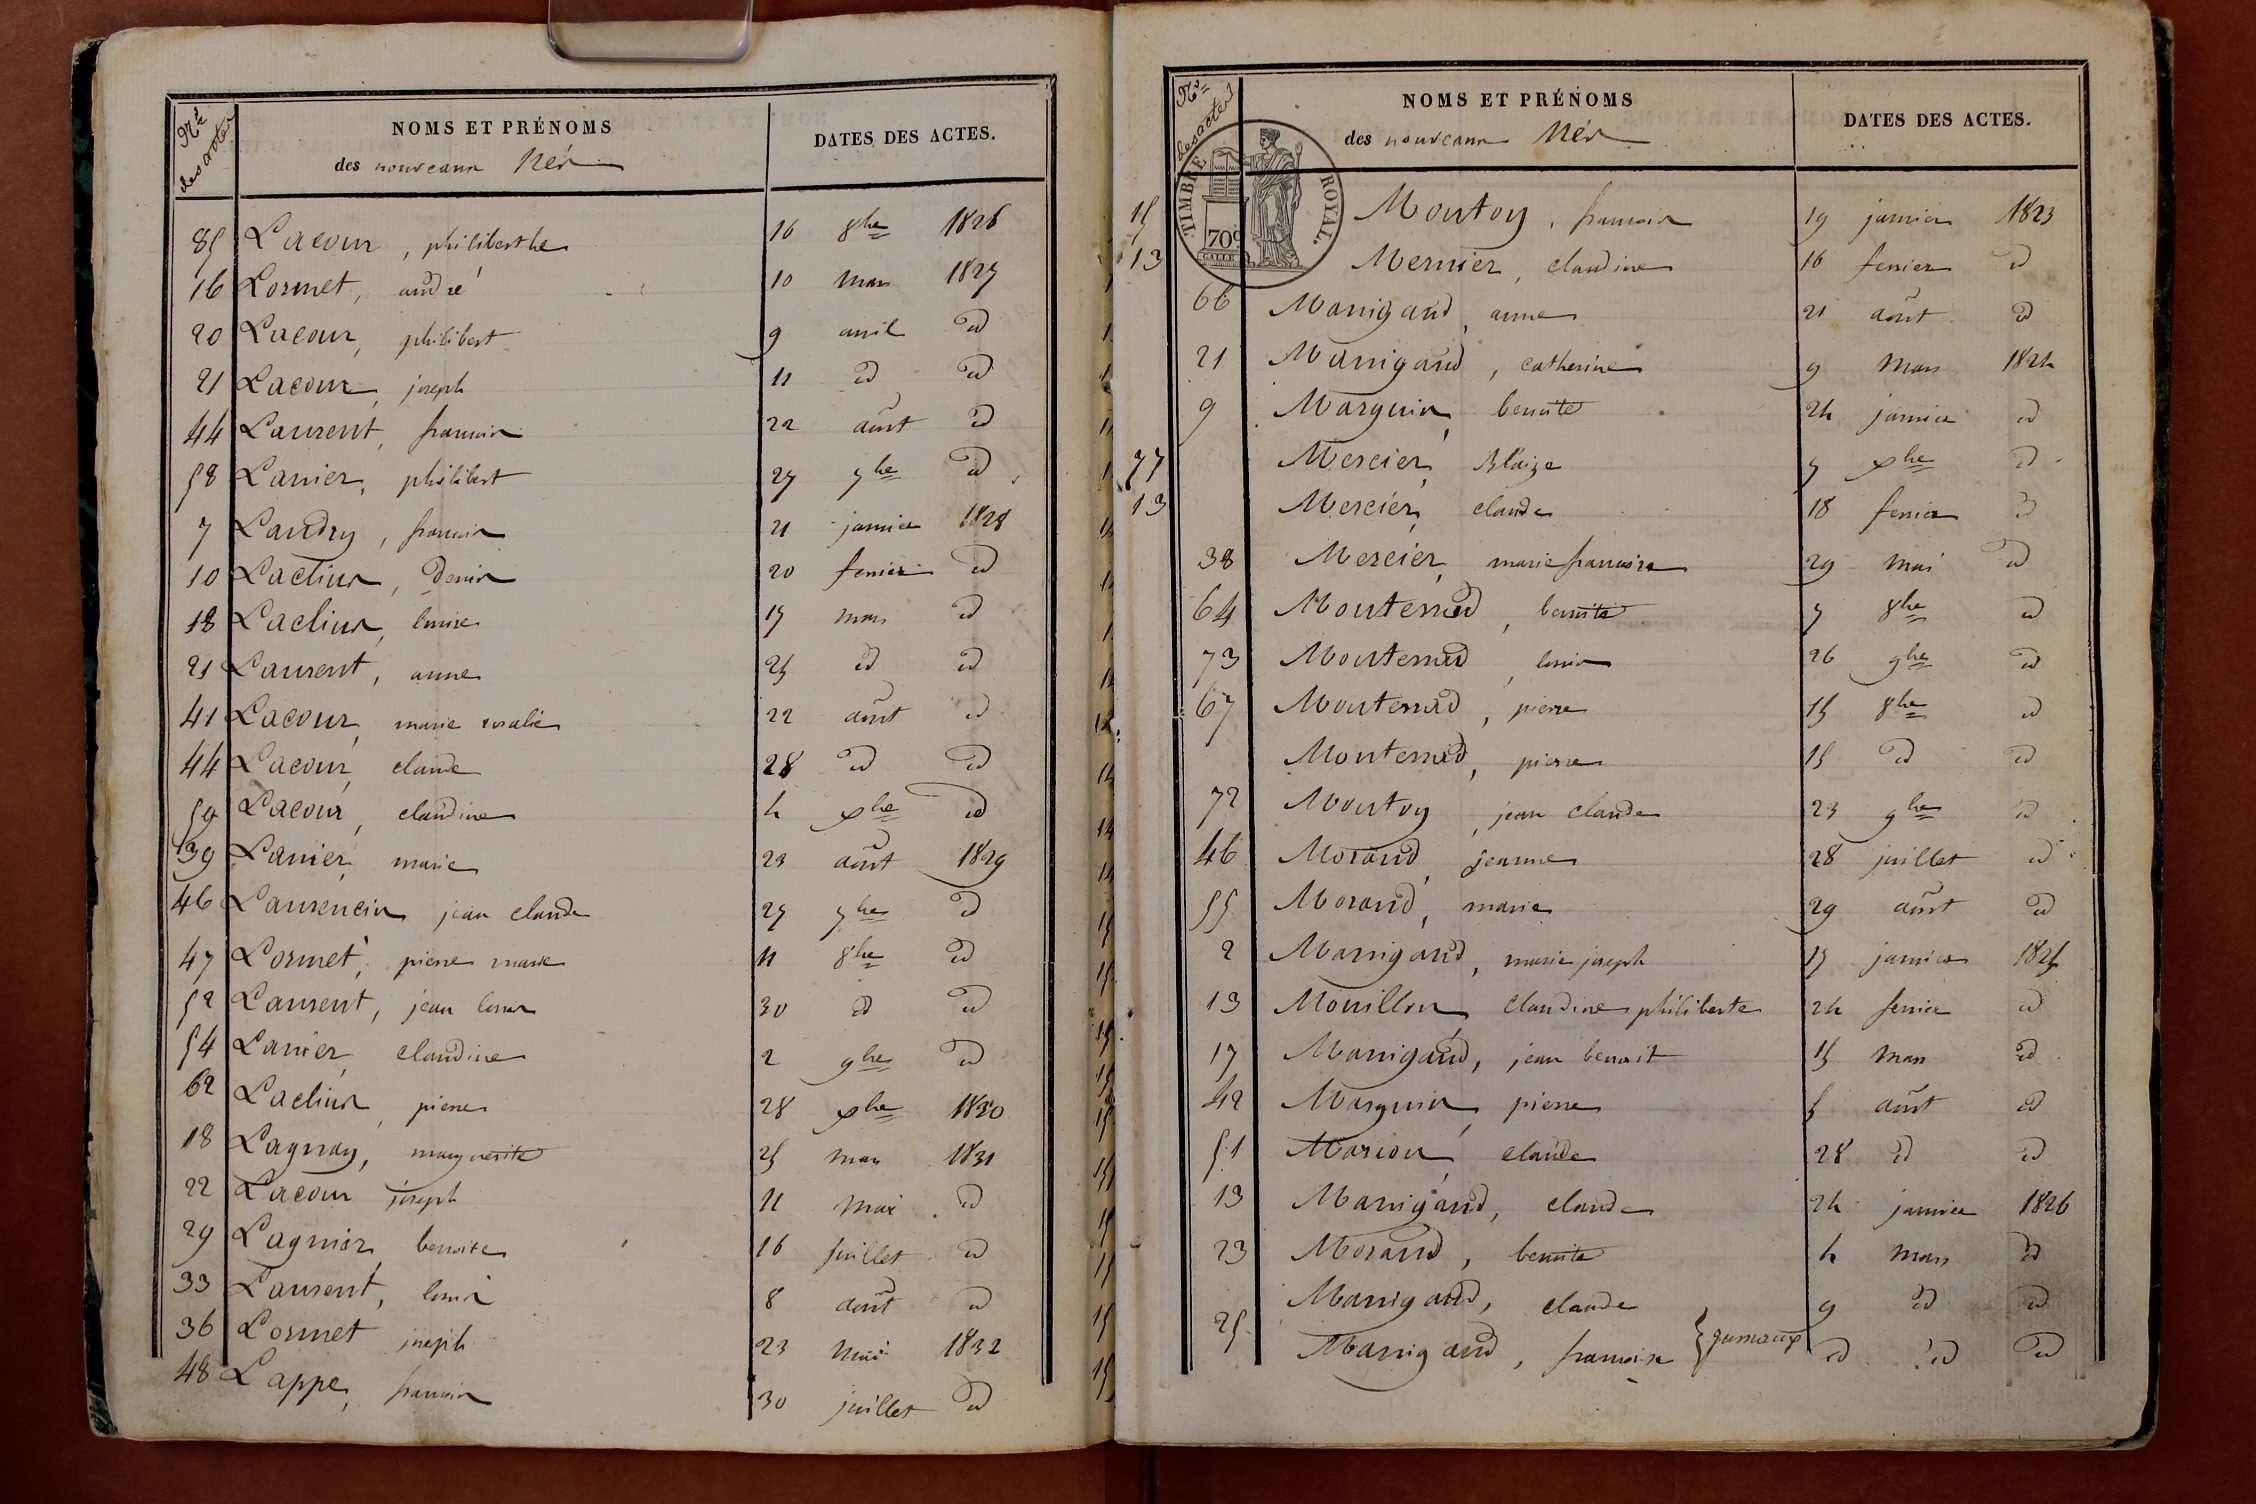 Nos des actes
NOMS ET PRÉNOMS
des nouveaux Nés
DATES DES ACTES.
85 Lacour, philiberthe 16 8bre 1826
16 Lormet, andré 10 mars 1827
20 Lacour, philibert 9 avril id
21 Lacour, joseph 11 id id
44 Laurent, francois 22 août id
58 Lanier, philibert 27 7bre id
7 Landry, francois 21 janvier 1828
10 Laclius, Denis 20 fevrier id
18 Laclius, louise 17 mars id
21 Laurent, anne 25 id id
41 Lacour, marie rosalie 22 août id
44 Lacour, claude 28 id id
59 Lacour, claudine 4 xbre id
39 Lanier, marie 23 août 1829
46 Laurencin jean claude 27 7bre id
47 Lormet, pierre marie 11 8bre id
52 Laurent, jean louis 30 id id
54 Lanier, claudine 2 9bre id
62 Laclius, pierre 28 xbre 1830
18 Lagnay, marguerite 25 mars 1831
22 Lacour joseph 11 mai id
29 Lagnier, benoite 16 juillet id
33 Laurent, louis 8 août id
36 Lormet joseph 23 mai 1832
48 Lappe, francois 30 juillet id
Nos des actes
NOMS ET PRÉNOMS
des nouveaux Nés
DATES DES ACTES.
TIMBRE ROYAL.
70c
15 Moutoy, francois 19 janvier 1823
13 Mernier, claudine 16 fevrier id
66 Manigand, anne 21 août id
21 Manigand, catherine 9 mars 1824
9 Marguin, benoite 24 janvier id
77 Mercier, Blaize 7 xbre id
13 Mercier, claude 18 fevrier id
38 Mercier, marie francoise 29 mai id
64 Monterrad, benoite 7 8bre id
73 Monterrad, louis 26 9bre id
67 Monterrad, pierre 15 8bre id
Monterrad, pierre 15 id id
72 Moutoy, jean claude 23 9bre id
46 Morand, jeanne 28 juillet id
55 Morand, marie 29 août id
2 Manigand, marie joseph 17 janvier 1825
13 Mouillon, claudine philiberte 24 fevrier id
17 Manigand, jean benoit 15 mars id
42 Marguin, pierre 5 août id
51 Marion, claude 28 id id
13 Manigand, claude 24 janvier 1826
23 Morand, benoite 4 mars id
Manigand, claude 9 id id
25 Manigand, francoise } gumeaux id id id